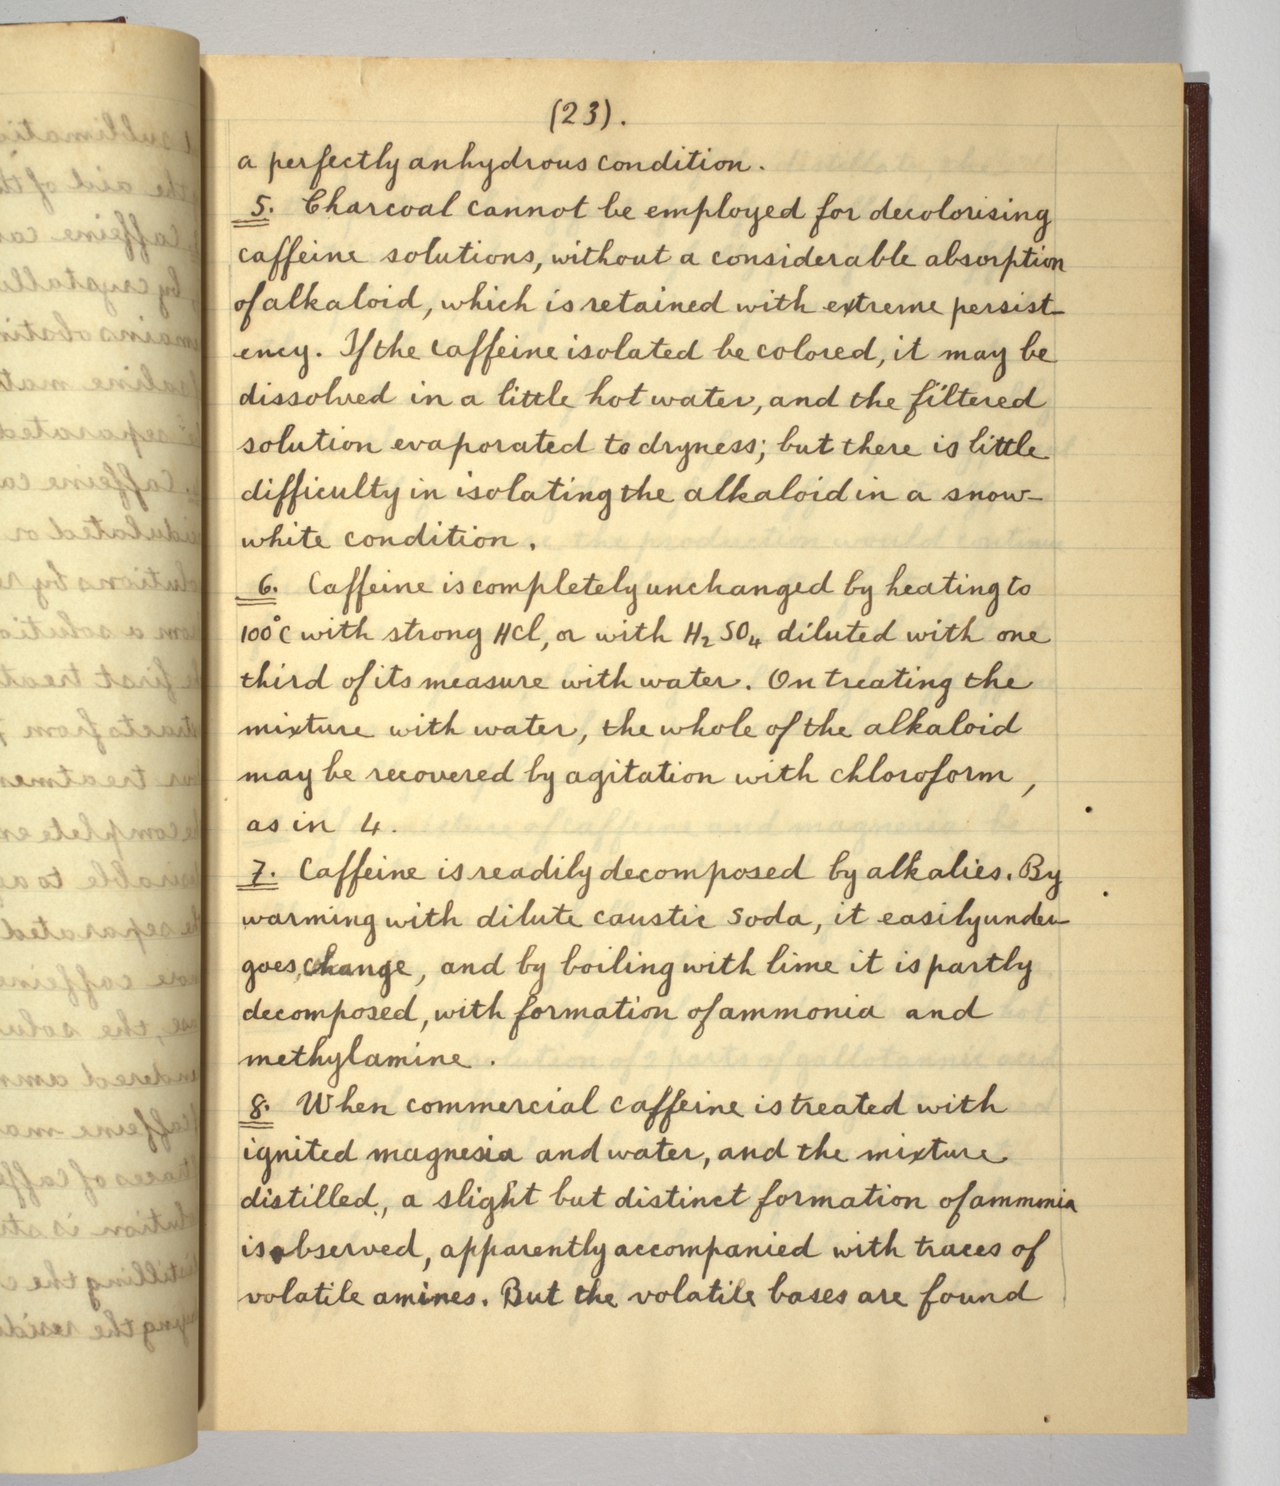 (23).
a perfectly anhydrous condition.
5. Charcoal cannot be employed for decolorising
caffeine solutions, without a considerable absorption
of alkaloid, which is retained with extreme persist-
ency. If the caffeine isolated be colored, it may be
dissolved in a little hot water, and the filtered
solution evaporated to dryness; but there is little
difficulty in isolating the alkaloid in a snow-
white condition.
6. Caffeine is completely unchanged by heating to
100°C with strong HCl, or with H₂SO₄ diluted with one
third of its measure with water. On treating the
mixture with water, the whole of the alkaloid
may be recovered by agitation with chloroform,
as in 4.
7. Caffeine is readily decomposed by alkalies. By
warming with dilute caustic soda, it easily under-
goes change, and by boiling with lime it is partly
decomposed, with formation of ammonia and
methylamine.
8. When commercial caffeine is treated with
ignited magnesia and water, and the mixture
distilled, a slight but distinct formation of ammonia
is observed, apparently accompanied with traces of
volatile amines. But the volatile bases are found